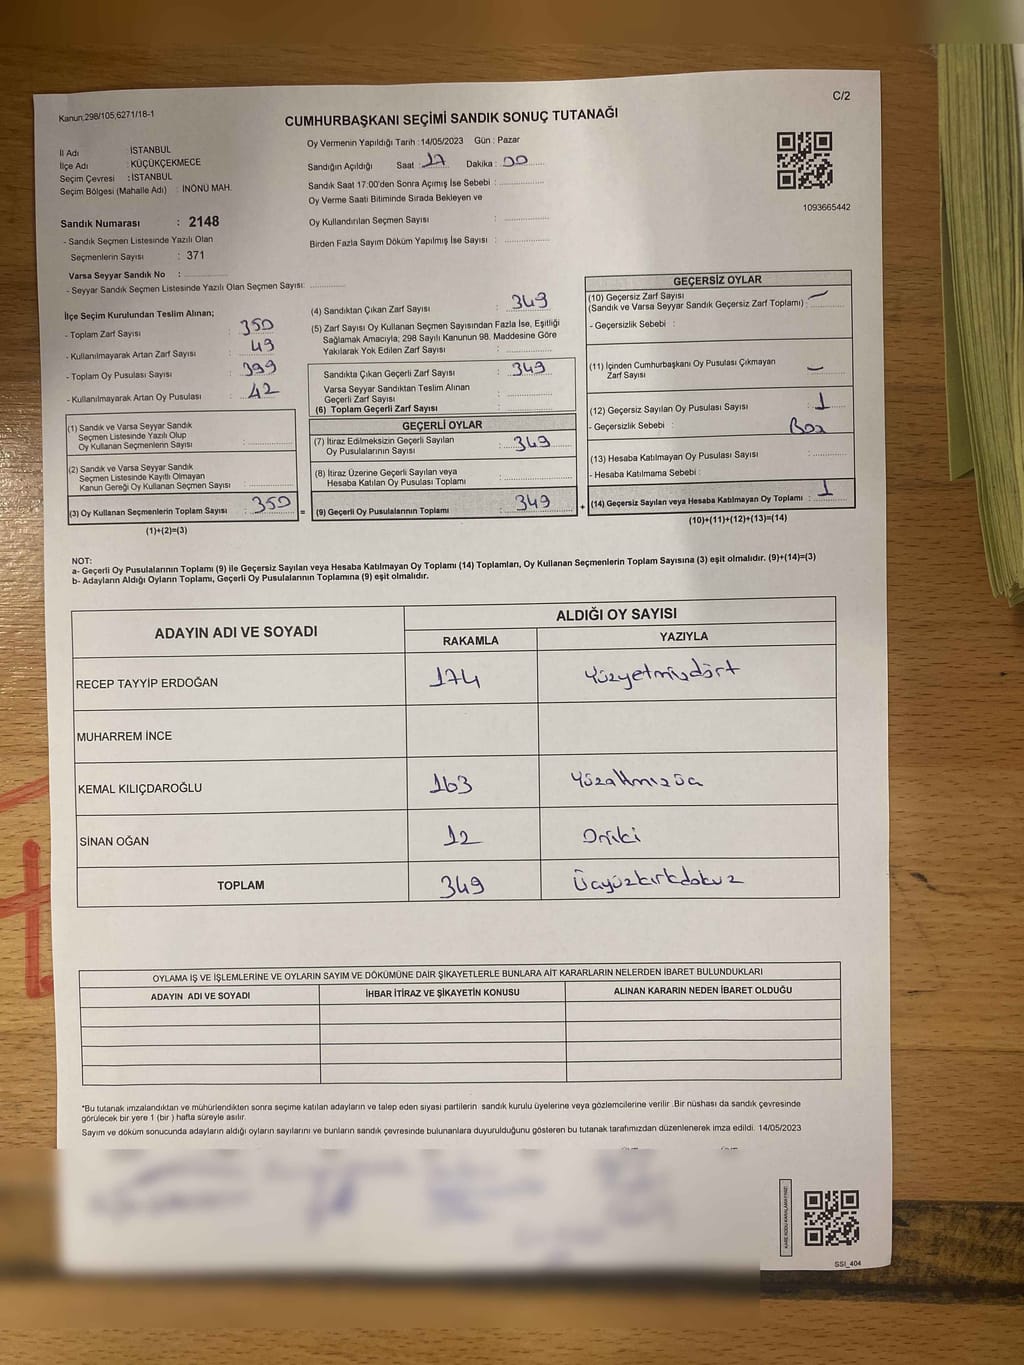 C/2
Kanun,298/105,6271/18-1
CUMHURBAŞKANI SEÇİMİ SANDIK SONUÇ TUTANAĞI
İl Adı : İSTANBUL
İlçe Adı : KÜÇÜKÇEKMECE
Seçim Çevresi : İSTANBUL
Seçim Bölgesi (Mahalle Adı) : İNÖNÜ MAH.
Oy Vermenin Yapıldığı Tarih : 14/05/2023 Gün : Pazar
Sandığın Açıldığı Saat : 17 Dakika : 00
Sandık Saat 17:00'den Sonra Açımış İse Sebebi :
Oy Verme Saati Bitiminde Sırada Bekleyen ve
Oy Kullandırılan Seçmen Sayısı :
Birden Fazla Sayım Döküm Yapılmış İse Sayısı :
1093665442
Sandık Numarası : 2148
- Sandık Seçmen Listesinde Yazılı Olan
Seçmenlerin Sayısı : 371
Varsa Seyyar Sandık No :
- Seyyar Sandık Seçmen Listesinde Yazılı Olan Seçmen Sayısı:
İlçe Seçim Kurulundan Teslim Alınan;
- Toplam Zarf Sayısı : 350
- Kullanılmayarak Artan Zarf Sayısı : 49
- Toplam Oy Pusulası Sayısı : 399
- Kullanılmayarak Artan Oy Pusulası : 42
(1) Sandık ve Varsa Seyyar Sandık
Seçmen Listesinde Yazılı Olup
Oy Kullanan Seçmenlerin Sayısı :
(2) Sandık ve Varsa Seyyar Sandık
Seçmen Listesinde Kayıtlı Olmayan
Kanun Gereği Oy Kullanan Seçmen Sayısı :
(3) Oy Kullanan Seçmenlerin Toplam Sayısı : 350 =
(1)+(2)=(3)
(4) Sandıktan Çıkan Zarf Sayısı : 349
(5) Zarf Sayısı Oy Kullanan Seçmen Sayısından Fazla İse, Eşitliği
Sağlamak Amacıyla; 298 Sayılı Kanunun 98. Maddesine Göre
Yakılarak Yok Edilen Zarf Sayısı :
Sandıkta Çıkan Geçerli Zarf Sayısı : 349
Varsa Seyyar Sandıktan Teslim Alınan
Geçerli Zarf Sayısı :
(6) Toplam Geçerli Zarf Sayısı :
GEÇERLİ OYLAR
(7) İtiraz Edilmeksizin Geçerli Sayılan
Oy Pusulasının Sayısı : 349
(8) İtiraz Üzerine Geçerli Sayılan veya
Hesaba Katılan Oy Pusulası Toplamı :
(9) Geçerli Oy Pusulalarının Toplamı : 349 +
GEÇERSİZ OYLAR
(10) Geçersiz Zarf Sayısı
(Sandık ve Varsa Seyyar Sandık Geçersiz Zarf Toplamı) : –
- Geçersizlik Sebebi :
(11) İçinden Cumhurbaşkanı Oy Pusulası Çıkmayan
Zarf Sayısı : –
(12) Geçersiz Sayılan Oy Pusulası Sayısı : 1
- Geçersizlik Sebebi : Boş
(13) Hesaba Katılmayan Oy Pusulası Sayısı :
- Hesaba Katılmama Sebebi :
(14) Geçersiz Sayılan veya Hesaba Katılmayan Oy Toplamı : 1
(10)+(11)+(12)+(13)=(14)
NOT:
a- Geçerli Oy Pusulalarının Toplamı (9) ile Geçersiz Sayılan veya Hesaba Katılmayan Oy Toplamı (14) Toplamları, Oy Kullanan Seçmenlerin Toplam Sayısına (3) eşit olmalıdır. (9)+(14)=(3)
b- Adayların Aldığı Oyların Toplamı, Geçerli Oy Pusulalarının Toplamına (9) eşit olmalıdır.
ADAYIN ADI VE SOYADI ALDIĞI OY SAYISI
RAKAMLA YAZIYLA
RECEP TAYYİP ERDOĞAN 174 Yüzyetmişdört
MUHARREM İNCE
KEMAL KILIÇDAROĞLU 163 Yüzaltmışüç
SİNAN OĞAN 12 Oniki
TOPLAM 349 Üçyüzkırkdokuz
OYLAMA İŞ VE İŞLEMLERİNE VE OYLARIN SAYIM VE DÖKÜMÜNE DAİR ŞİKAYETLERLE BUNLARA AİT KARARLARIN NELERDEN İBARET BULUNDUKLARI
ADAYIN ADI VE SOYADI İHBAR İTİRAZ VE ŞİKAYETİN KONUSU ALINAN KARARIN NEDEN İBARET OLDUĞU
*Bu tutanak imzalandıktan ve mühürlendikten sonra seçime katılan adayların ve talep eden siyasi partilerin sandık kurulu üyelerine veya gözlemcilerine verilir .Bir nüshası da sandık çevresinde
görülecek bir yere 1 (bir ) hafta süreyle asılır.
Sayım ve döküm sonucunda adayların aldığı oyların sayılarını ve bunların sandık çevresinde bulunanlara duyurulduğunu gösteren bu tutanak tarafımızdan düzenlenerek imza edildi. 14/05/2023
SSI_404